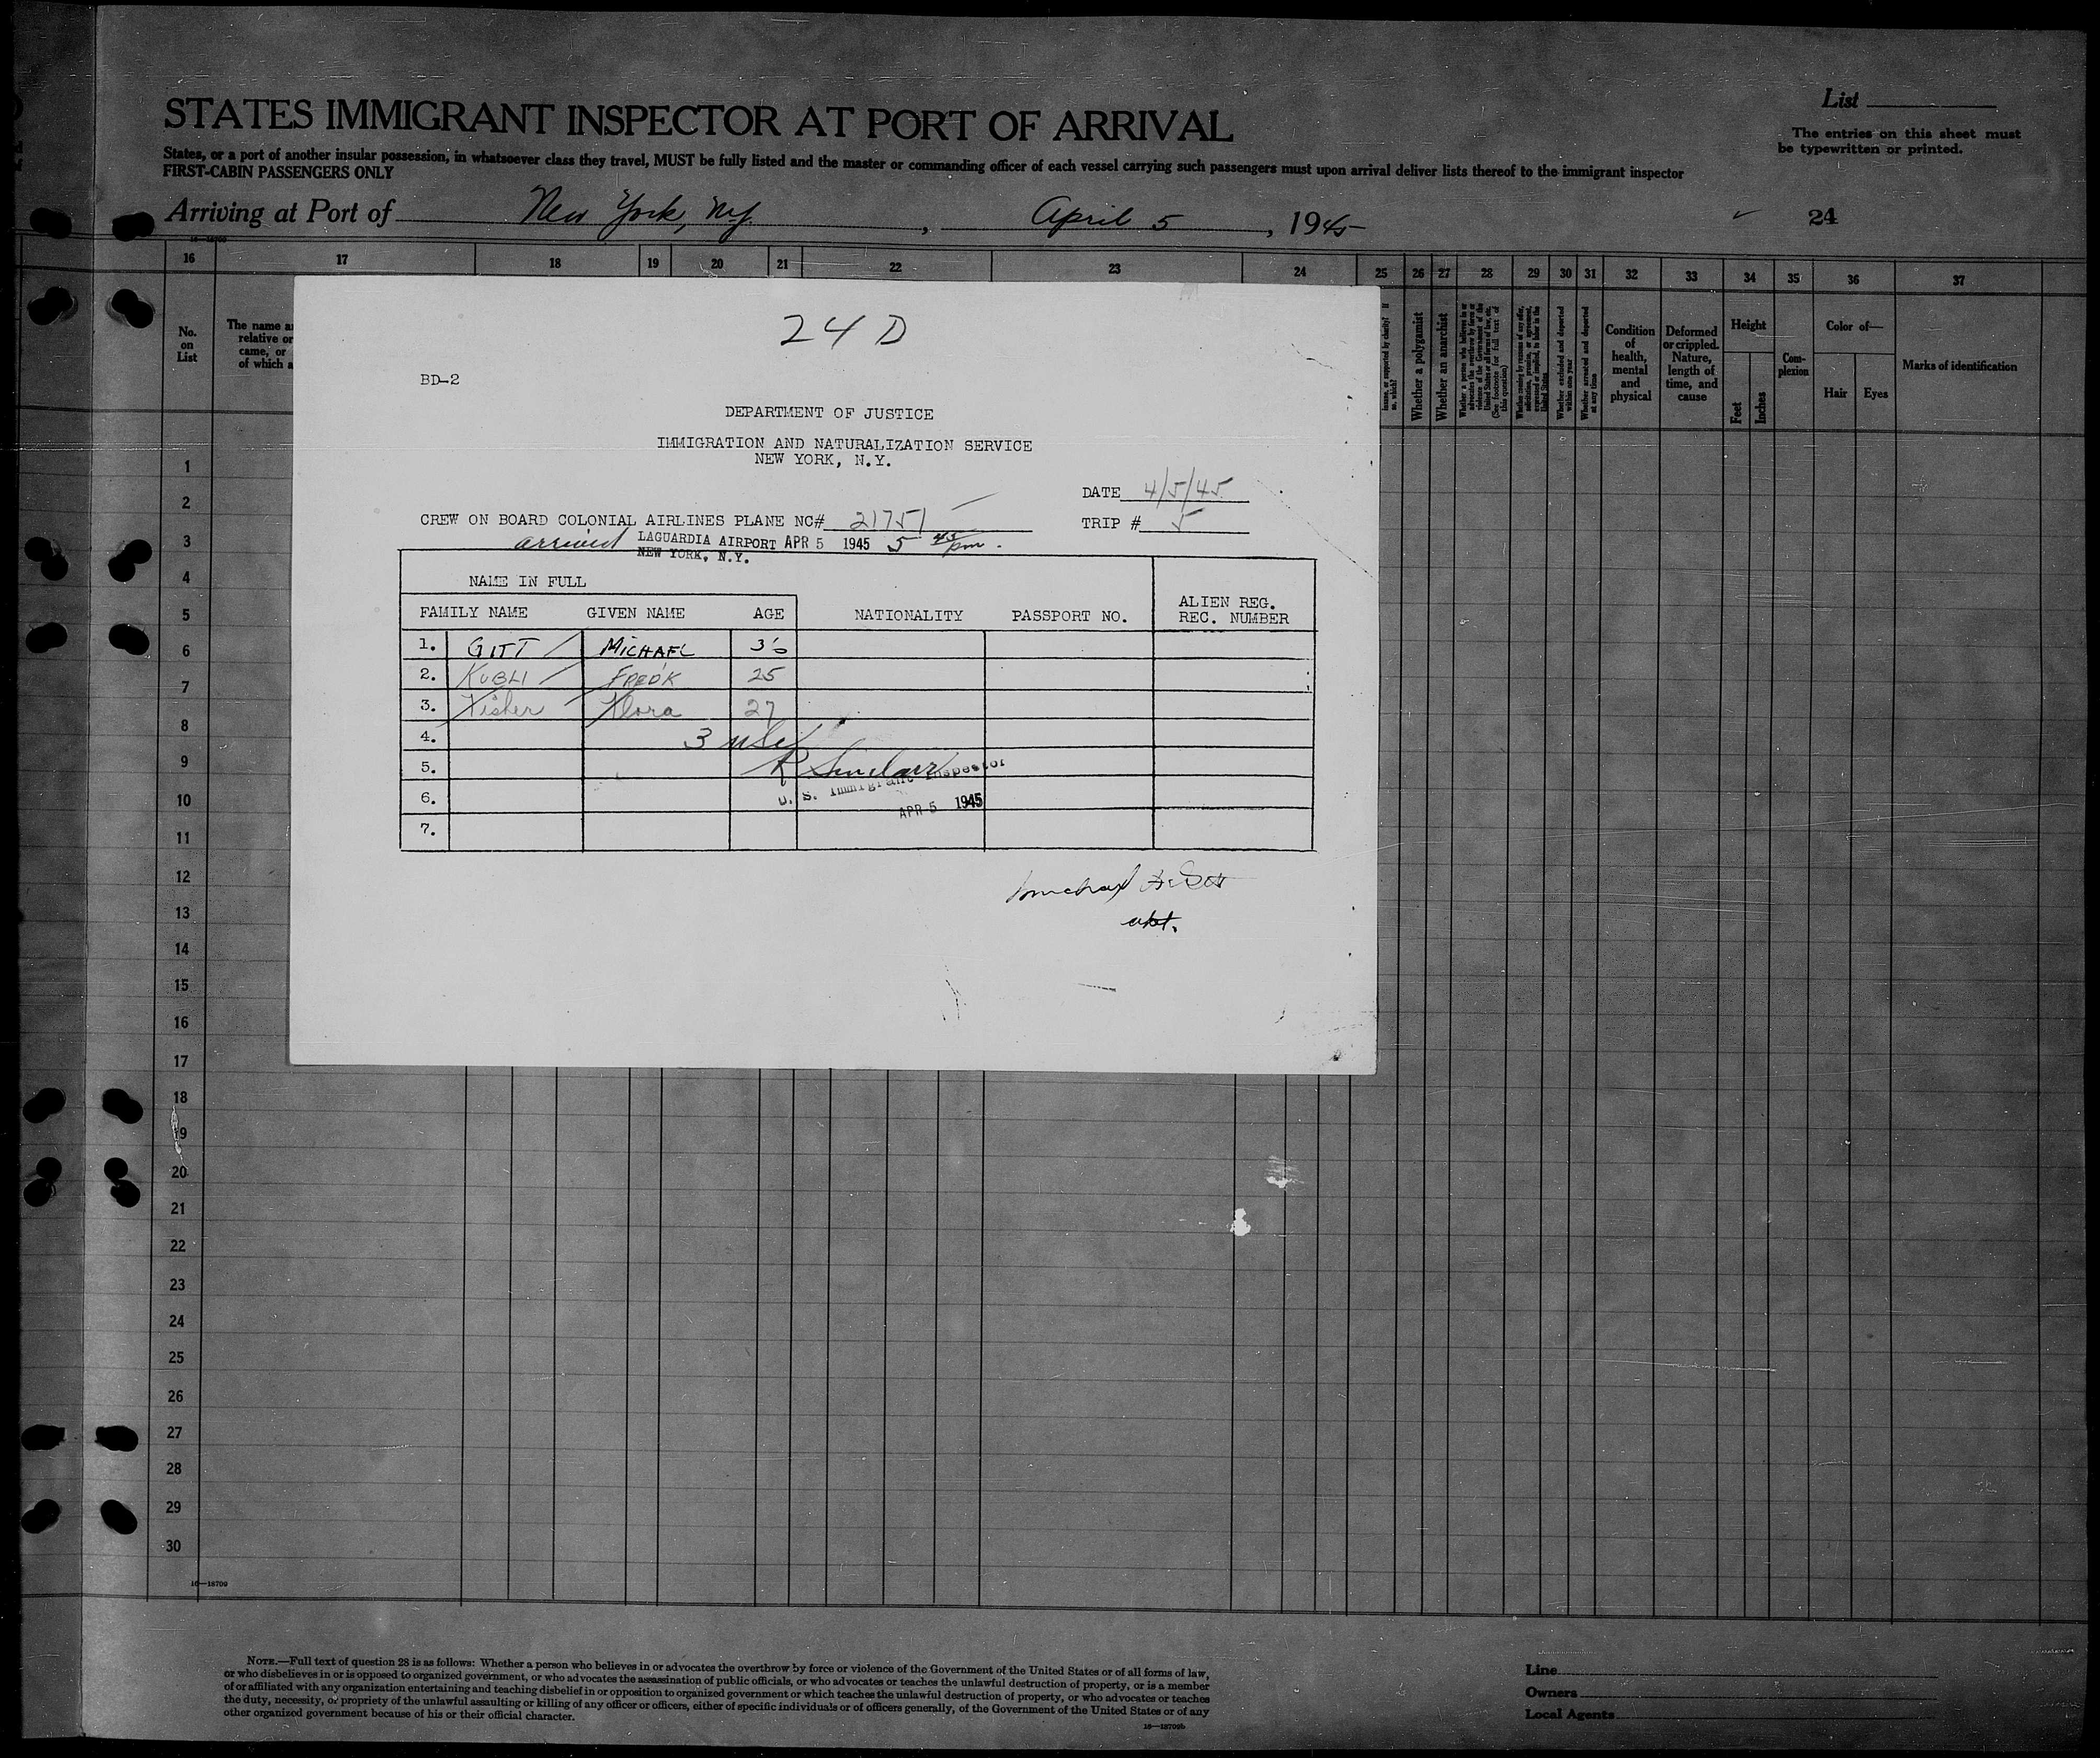 STATES IMMIGRANT INSPECTOR AT PORT OF ARRIVAL
List
The entries on this sheet must
be typewritten or printed.
States, or a port of another insular possession, in whatsoever class they travel, MUST be fully listed and the master or commanding officer of each vessel carrying such passengers must upon arrival deliver lists thereof to the immigrant inspector
FIRST-CABIN PASSENGERS ONLY
Arriving at Port of New York, N.Y., April 5, 1945
24
16 17 18 19 20 21 22 23 24 25 26 27 28 29 30 31 32 33 34 35 36 37
No.
on
List
The name a
relative or
came, or
of which a
Whether a polygamist
Whether an anarchist
Whether excluded and deported
within one year
Whether arrested and deported
at any time
Condition
of
health,
mental
and
physical
Deformed
or crippled.
Nature,
length of
time, and
cause
Height
Feet
Inches
Com-
plexion
Color of—
Hair
Eyes
Marks of identification
24 D
BD-2
DEPARTMENT OF JUSTICE
IMMIGRATION AND NATURALIZATION SERVICE
NEW YORK, N.Y.
DATE 4/5/45
CREW ON BOARD COLONIAL AIRLINES PLANE NC# 21751
TRIP # 5
arrived LAGUARDIA AIRPORT APR 5 1945 5 45 pm.
NEW YORK, N.Y.
NAME IN FULL
FAMILY NAME GIVEN NAME AGE NATIONALITY PASSPORT NO. ALIEN REG.
REC. NUMBER
1. GITT MICHAEL 36
2. KUBLI FRED'K 25
3. Fisher Flora 27
4. 3 USC
5. R Sinclair
U. S. Immigrant Inspector
6. APR 5 1945
7.
Michael
1
2
3
4
5
6
7
8
9
10
11
12
13
14
15
16
17
18
19
20
21
22
23
24
25
26
27
28
29
30
16—18709
NOTE.—Full text of question 28 is as follows: Whether a person who believes in or advocates the overthrow by force or violence of the Government of the United States or of all forms of law,
or who disbelieves in or is opposed to organized government, or who advocates the assassination of public officials, or who advocates or teaches the unlawful destruction of property, or is a member
of or affiliated with any organization entertaining and teaching disbelief in or opposition to organized government or which teaches the unlawful destruction of property, or who advocates or teaches
the duty, necessity, or propriety of the unlawful assaulting or killing of any officer or officers, either of specific individuals or of officers generally, of the Government of the United States or of any
other organized government because of his or their official character.
16—18709b
Line
Owners
Local Agents